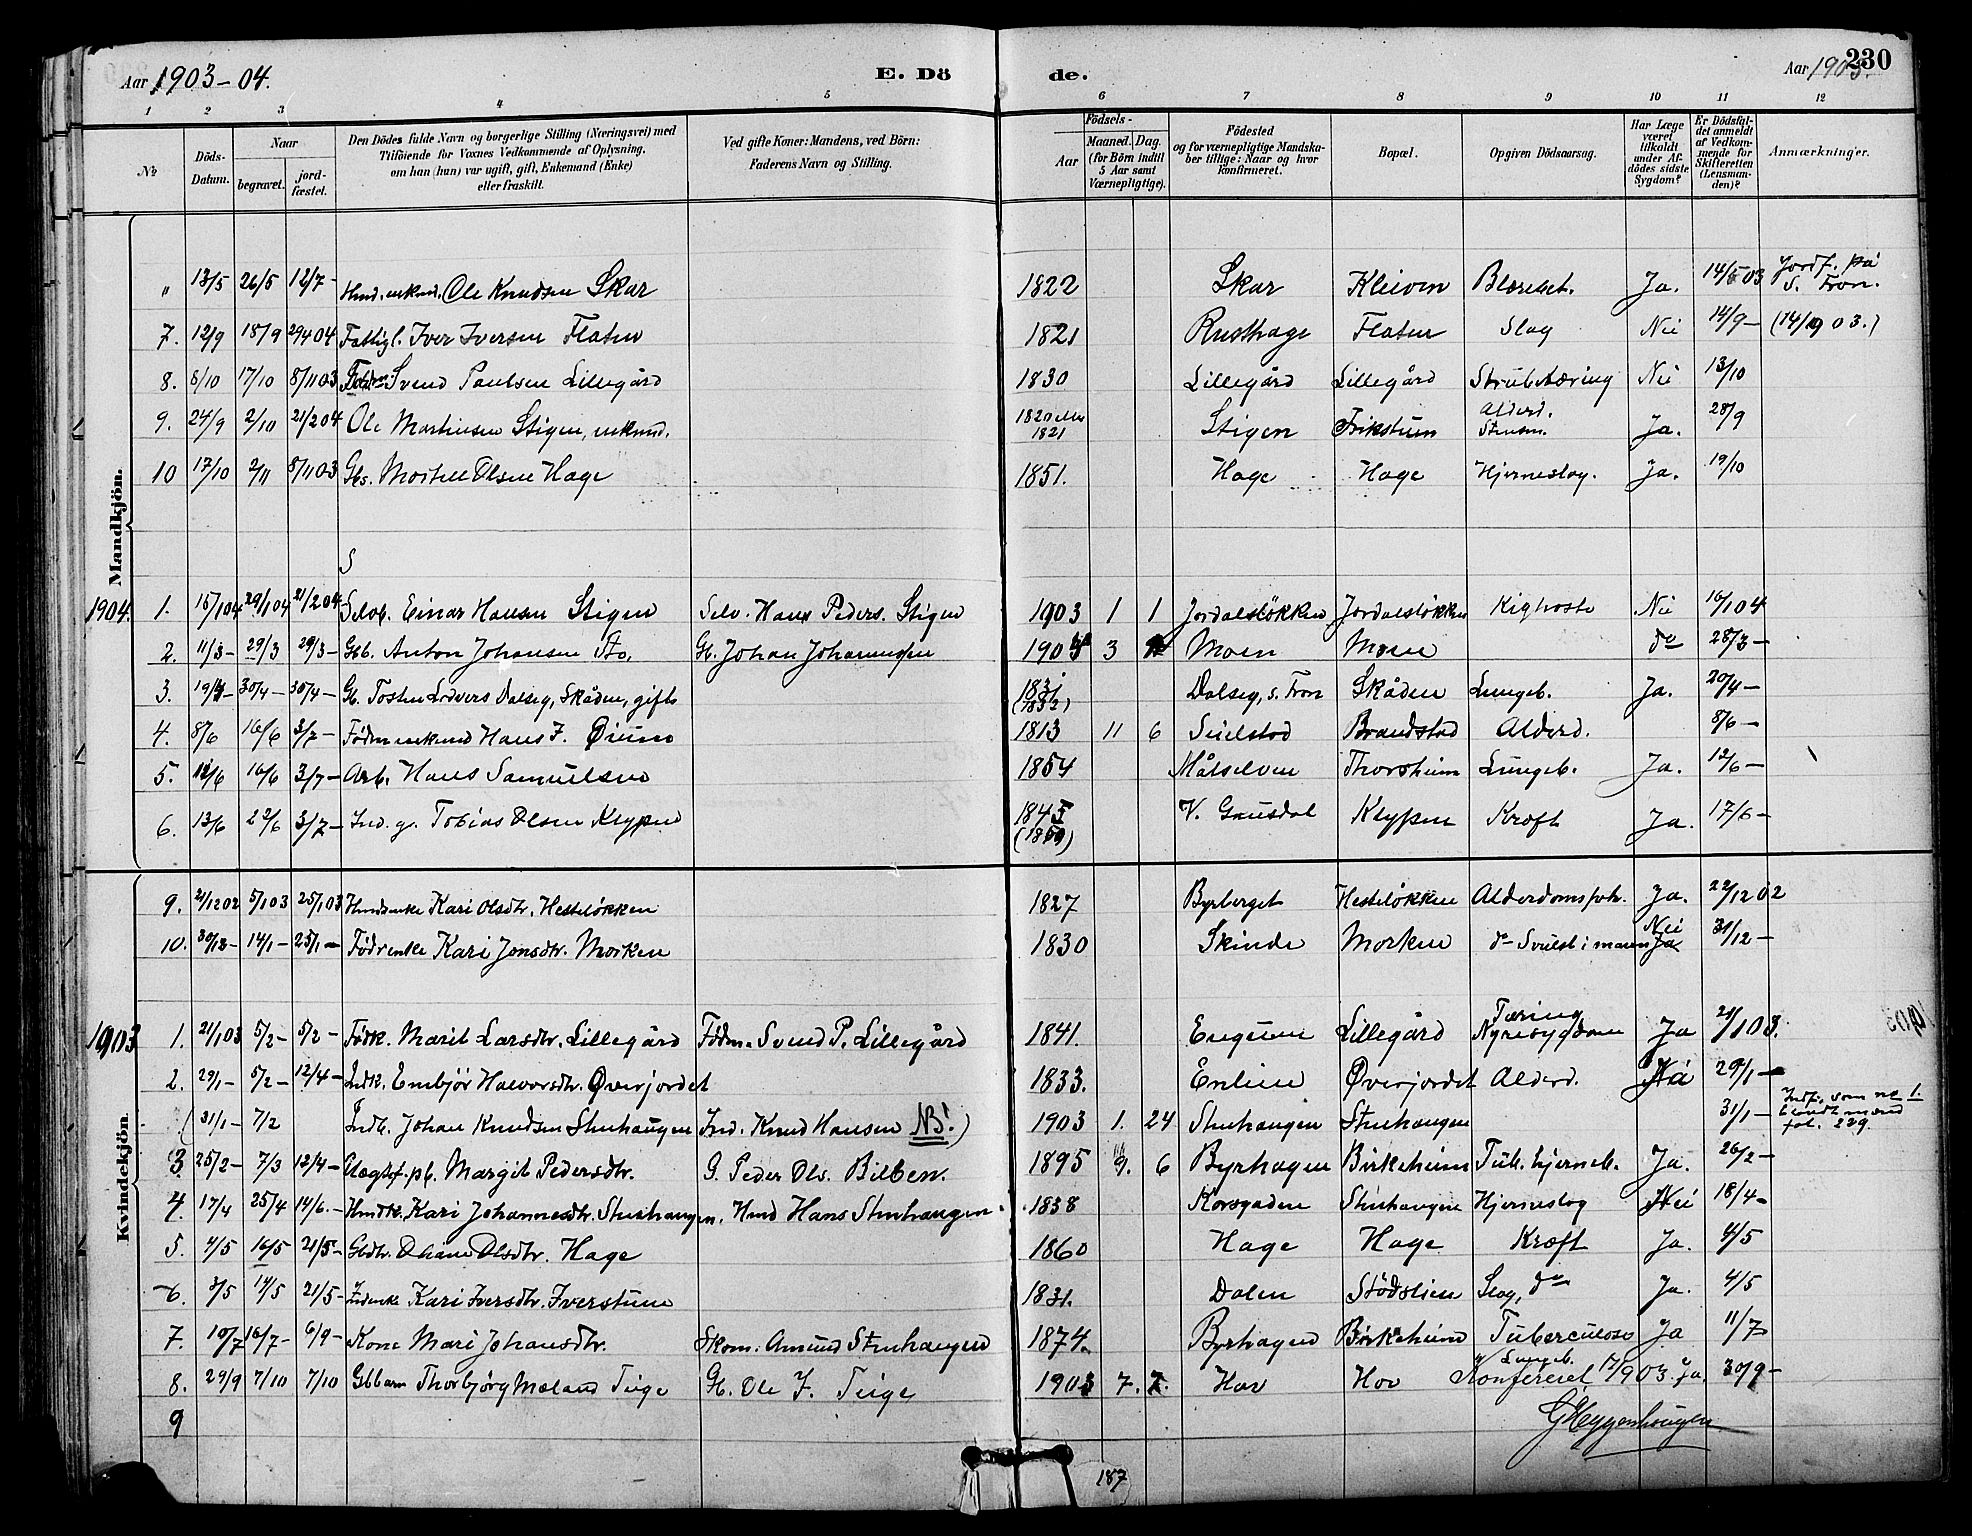 Aar 1903-04.
E. Dö de.
Aar 1903.
230
1 2 3 4 5 6 7 8 9 10 11 12
№
Döds-Datum.
Naar
begravet.
jord-fæstet.
Den Dödes fulde Navn og borgerlige Stilling (Næringsvei) med
Tilföiende for Voxnes Vedkommende af Oplysning,
om han (hun) var ugift, gift, Enkemand (Enke)
eller fraskilt.
Ved gifte Koner: Mandens, ved Börn:
Faderens Navn og Stilling.
Födsels-
Aar
Maaned. Dag.
(for Börn indtil
5 Aar samt
Værnepligtige).
Födested
og for værnepligtige Mandska-
ber tillige: Naar og hvor
konfirmeret.
Bopæl.
Opgiven Dödsaarsag.
Har Læge
været
tilkaldt
under Af-
dödes sidste
Sygdom?
Er Dödsfal-
det anmeldt
af Vedkom-
mende for
Skifteretten
(Lensman-
den)?
Anmærkninger.
Mandkjön.
" 13/5 26/5 12/7- Ole Knudsen Skar 1822 Skar Kleiven Ja. 14/5 03 Jordf. på
S. Fron.
7. 12/9 18/9 Fattigl. Iver Iversen Flaten 1821 Rusthage Flaten Slag Nei 14/9- (14/9 03.)
8. 8/10 17/10 8/11 03 Svend Paulsen Lillegård 1830 Lillegård Lillegård Strubetæring Nei 13/10
9. 24/9 2/10 21/2 04 Ole Martinsen Stigen, enkmd. 1820 eller
1821 Stigen Frikstuen Alderd. Ja. 28/9
10 17/10 2/11 8/11 03 Gbs. Morten Olsen Hage 1851. Hage Hage Hjerneslag. Ja. 19/10
S
1904. 1. 15/1 04 29/1 04 21/2 04 Selvb. Einar Hansen Stigen Selv. Hans Peders. Stigen 1903 1 1 Jordalsløkken Jordalsløkken Kighoste Nei 16/1 04
2. 11/3- 29/3 29/3- Gb. Anton Johansen Sto, G. Johan Johannessen 1903 3 Moen Moen do 28/3-
3. 19/4- 30/4- 30/4- G. Tosten Dalseg, Skåden, gift 1831
(1832) Dalseg, S. Fron Skåden Lungeb. Ja. 20/4-
4. 8/6 16/6 3/7- Födm enkmd Hans J. Øiumo 1813 11 6 Seielstad Brandstad Alderd. 8/6-
5. 11/6 16/6 3/7- Arb. Hans Samuelsen 1854 Målselven Thorsheim Lungeb. Ja. 12/6-
6. 13/6 22/6 3/7- Ind. g. Tobias Olsen Klypen 1845 V. Gausdal Klypen Kræft Ja. 17/6-
Kvindekjön.
9. 21/12 02 5/1 03 25/1 03 Husmdsenke Kari Olsdtr. Hesteløkken 1827 Byrberget Hesteløkken Ja. 22/12 02
10. 30/12- 14/1- 25/1- Födrenke Kari Jonsdtr. Morken 1830 Skinde Morken do Svulst i maven Nei
Ja 31/12-
1903 1. 21/1 03 5/2- 5/2- Födk. Marit Larsdtr. Lillegård Födm. Svend P. Lillegård 1841. Engum Lillegård Tæring
Nyresygdom Ja 21/1 03.
2. 29/1- 5/2- 12/4- Indk. Embjør Halvorsdtr. Øverjordet 1833. Enlien Øverjordet Alderd. 29/1-
(31/1- 7/2 Indb. Johan Knudsen Stenhaugen Ind. Knud Hansen NB!) 1903 1. 24 Stenhaugen Stenhaugen 31/1- Indf. som no 1.
blandt mænd
fol. 229.
3. 25/2- 7/3 12/4- Margit Pedersdtr. G. Peder Ols. Bilben. 1895 9. 6 Byrhagen Birkeheim Tub. hjerneb. Ja. 26/2-
4. 17/4 25/4 14/6.- Husmdk. Kari Johannesdtr. Stenhaugen. Husmd Hans Stenhaugen. 1838 Korsgaden Stenhaugen Hjerneslag Nei 18/4-
5. 4/5 16/5 21/5- Gbdtr. Olsdtr. Hage 1860 Hage Hage Kræft Ja. 4/5
6. 3/5 14/5 21/5- Indenke Kari Iversdtr. Iverstuen 1831. Dalen Stödslien Slag, do Ja. 4/5
7. 10/7 16/7- 6/9- Kone Mari Johansdtr. Skom. Amund Stenhaugen 1874. Byrhagen Birkeheim Tuberculose Ja 11/7
8. 29/9 7/10 7/10 Gbbarn Thorbjørg Mæland Teige G. Ole J. Teige 1903 7. 7. Hov Hov Lungeb. Ja. 30/9-
9
Konfereret 17/9 03.
G Heggenhougen
187